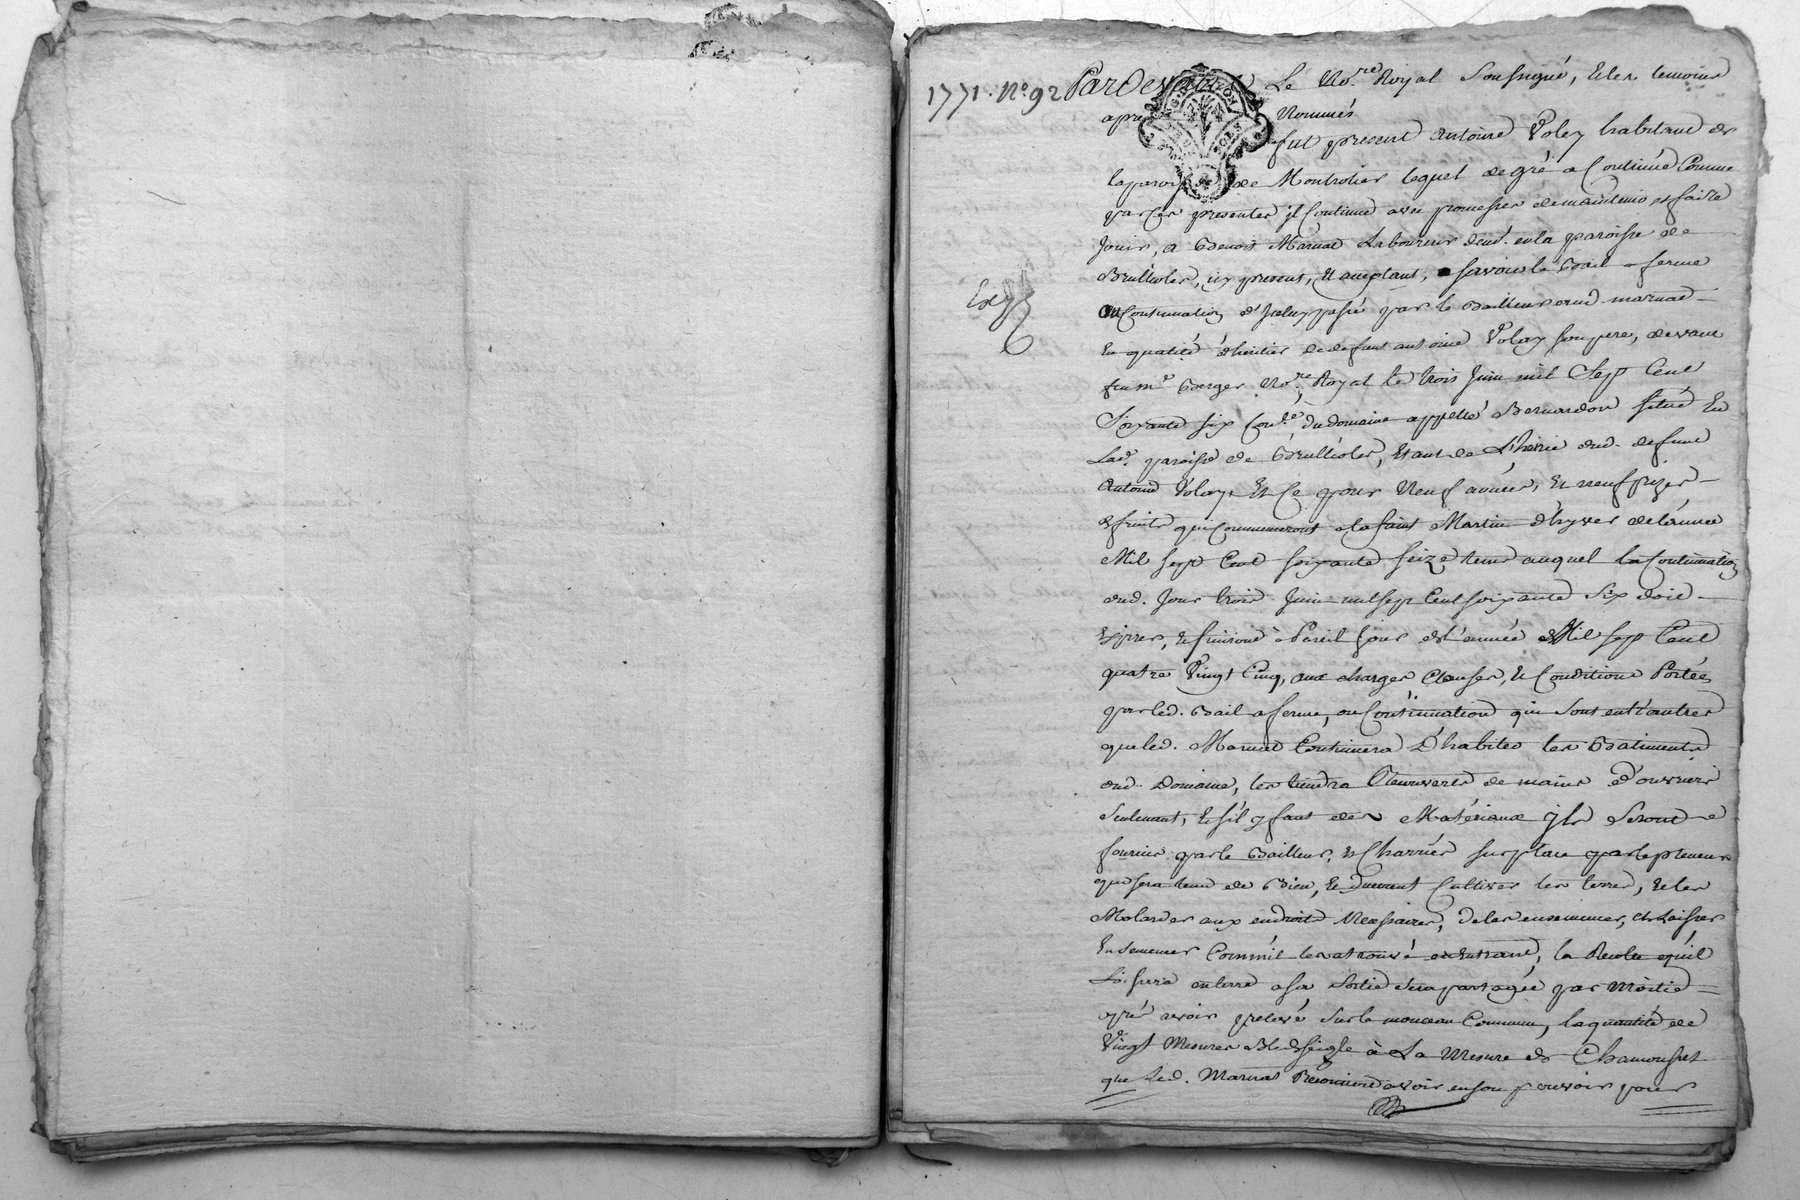 1771. N.º 92 Pardevant Le No.re Royal Soussigné, et les temoins
apres Nommés
fut present Antoine Volay habitant de
la paroisse de Montrotier lequel de gré a Continué Comme
par ces presentes il Continue avec promesses de maintenir et faire
Jouir, a Benoit Marnat Laboureur dem.t en la paroisse de
Brullioles, icy present, et acceptant, a savoir le Bail a ferme
ou Continuation d'Iceluy passé par le Bailleur aud. marnat
Exp.
En qualité d'heritier de defunt antoine Volay son pere, devant
feu m.e Berger No.re Royal le trois Juin mil Sept Cent
Soixante six du domaine appellé Bernardon situé En
Lad. paroisse de Brullioles, Etant de L'hoirie dud. defunt
Antoine Volay, Et Ce pour Neuf années, et neuf prises
de fruits qui Commenceront a la saint Martin d'hyver de l'année
Mil sept Cent soixante seize tems auquel la Continuation
dud. Jour trois Juin mil sept Cent soixante Six doit
Expirer, et finiront à Pareil Jour de l'année Mil sept Cent
quatre Vingt Cinq, aux charges Clauses, et Conditions Portées
par led. Bail a ferme, ou Continuation qui sont entr'autres
que led. Marnat Continuera D'habiter les Batiments
dud. Domaine, les tiendra Recouverts de mains d'ouvriers
Seulement, et s'il y faut des Matériaux ils Seront
fournis par le Bailleur, et Charriés sur place par le preneur
qui sera tenu de Bien, et Duement Cultiver les terres, et les
aux endroits Necessaires, de les ensemencer, et Laisser
Ensemencées Comm'il les a trouvé en Entrant, la Recolte qu'il
Laissera en terre a sa Sortie sera partagée par Moitié
apres avoir prelevé sur le monceau Commun, la quantité de
Vingt Mesures Bled seigle à La Mesure de Chamousset
que Led. Marnat Reconnoit avoir en son pouvoir pour